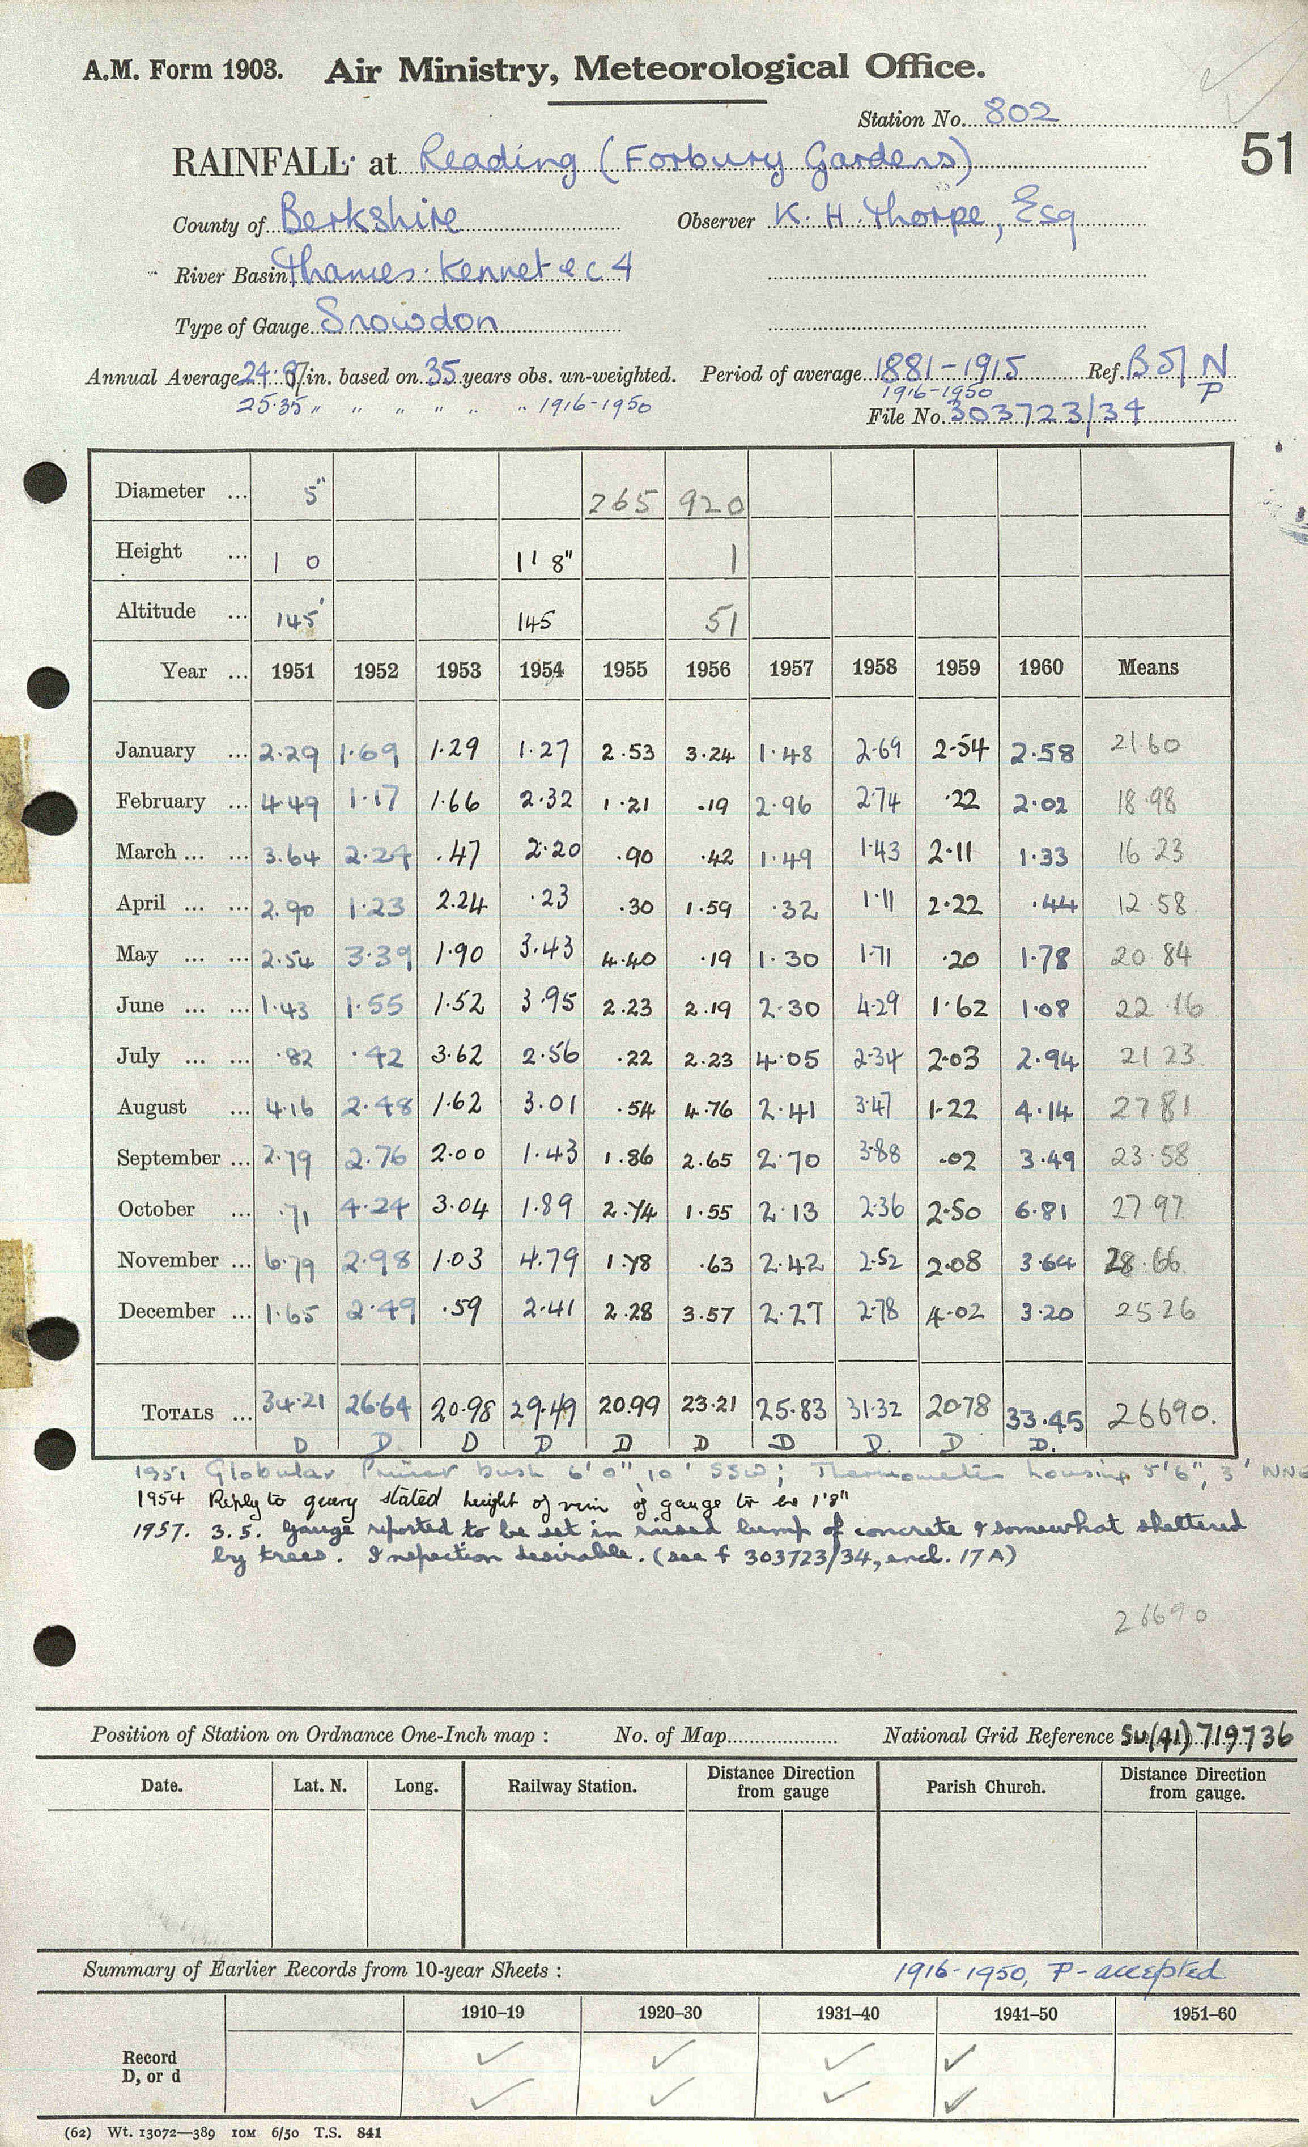 A.M. Form 1903. Air Ministry, Meteorological Office.
Station No. 802
51
RAINFALL at Reading (Forbury Gardens)
County of Berkshire Observer K. H. Thorpe, Esq
River Basin Thames: Kennet & C 4
Type of Gauge Snowdon
Annual Average 24.87 in. based on 35 years obs. un-weighted. Period of average 1881-1915 Ref. B5/N
25.35 " " " " " " 1916-1950 1916-1950 P
File No. 303723/34
Diameter ... 5" 265 920
Height ... 1 0 1' 8" 1
Altitude ... 145' 145 51
Year ... 1951 1952 1953 1954 1955 1956 1957 1958 1959 1960 Means
January ... 2.29 1.69 1.29 1.27 2.53 3.24 1.48 2.69 2.54 2.58 21 60
February ... 4.49 1.17 1.66 2.32 1.21 .19 2.96 2.74 .22 2.02 18.98
March ... ... 3.64 2.24 .47 2.20 .90 .42 1.49 1.43 2.11 1.33 16 23
April ... ... 2.90 1.23 2.24 .23 .30 1.59 .32 1.11 2.22 .44 12.58
May ... ... 2.54 3.39 1.90 3.43 4.40 .19 1.30 1.71 .20 1.78 20 84
June ... ... 1.43 1.55 1.52 3.95 2.23 2.19 2.30 4.29 1.62 1.08 22.16
July ... ... .82 .42 3.62 2.56 .22 2.23 4.05 2.34 2.03 2.94 21 23
August ... 4.16 2.48 1.62 3.01 .54 4.76 2.41 3.47 1.22 4.14 27 81
September ... 2.79 2.76 2.00 1.43 1.86 2.65 2.70 3.88 .02 3.49 23.58
October ... .71 4.24 3.04 1.89 2.74 1.55 2.13 2.36 2.50 6.81 27 97
November ... 6.79 2.98 1.03 4.79 1.78 .63 2.42 2.52 2.08 3.64 28.66
December ... 1.65 2.49 .59 2.41 2.28 3.57 2.27 2.78 4.02 3.20 25 26
TOTALS ... 34.21 26.64 20.98 29.49 20.99 23.21 25.83 31.32 20.78 33.45 26690.
D D D D D D D D D D.
1951 Globular bush 6' 0", 10' SSW; Thermometer housing 5'6", 3' WNW
1954 Reply to query stated height of rim of gauge to be 1'8"
1957. 3.5. Gauge reported to be set in raised lump of concrete & somewhat sheltered
by trees. Inspection desirable. (see f 303723/34, encl. 17A)
26690
Position of Station on Ordnance One-Inch map : No. of Map National Grid Reference SU(41) 719736
Date. Lat. N. Long. Railway Station. Distance Direction from gauge Parish Church. Distance Direction from gauge.
Summary of Earlier Records from 10-year Sheets : 1916-1950, P-accepted
1910–19 1920–30 1931–40 1941–50 1951–60
Record
D, or d
(62) Wt. 13072—389 10M 6/50 T.S. 841